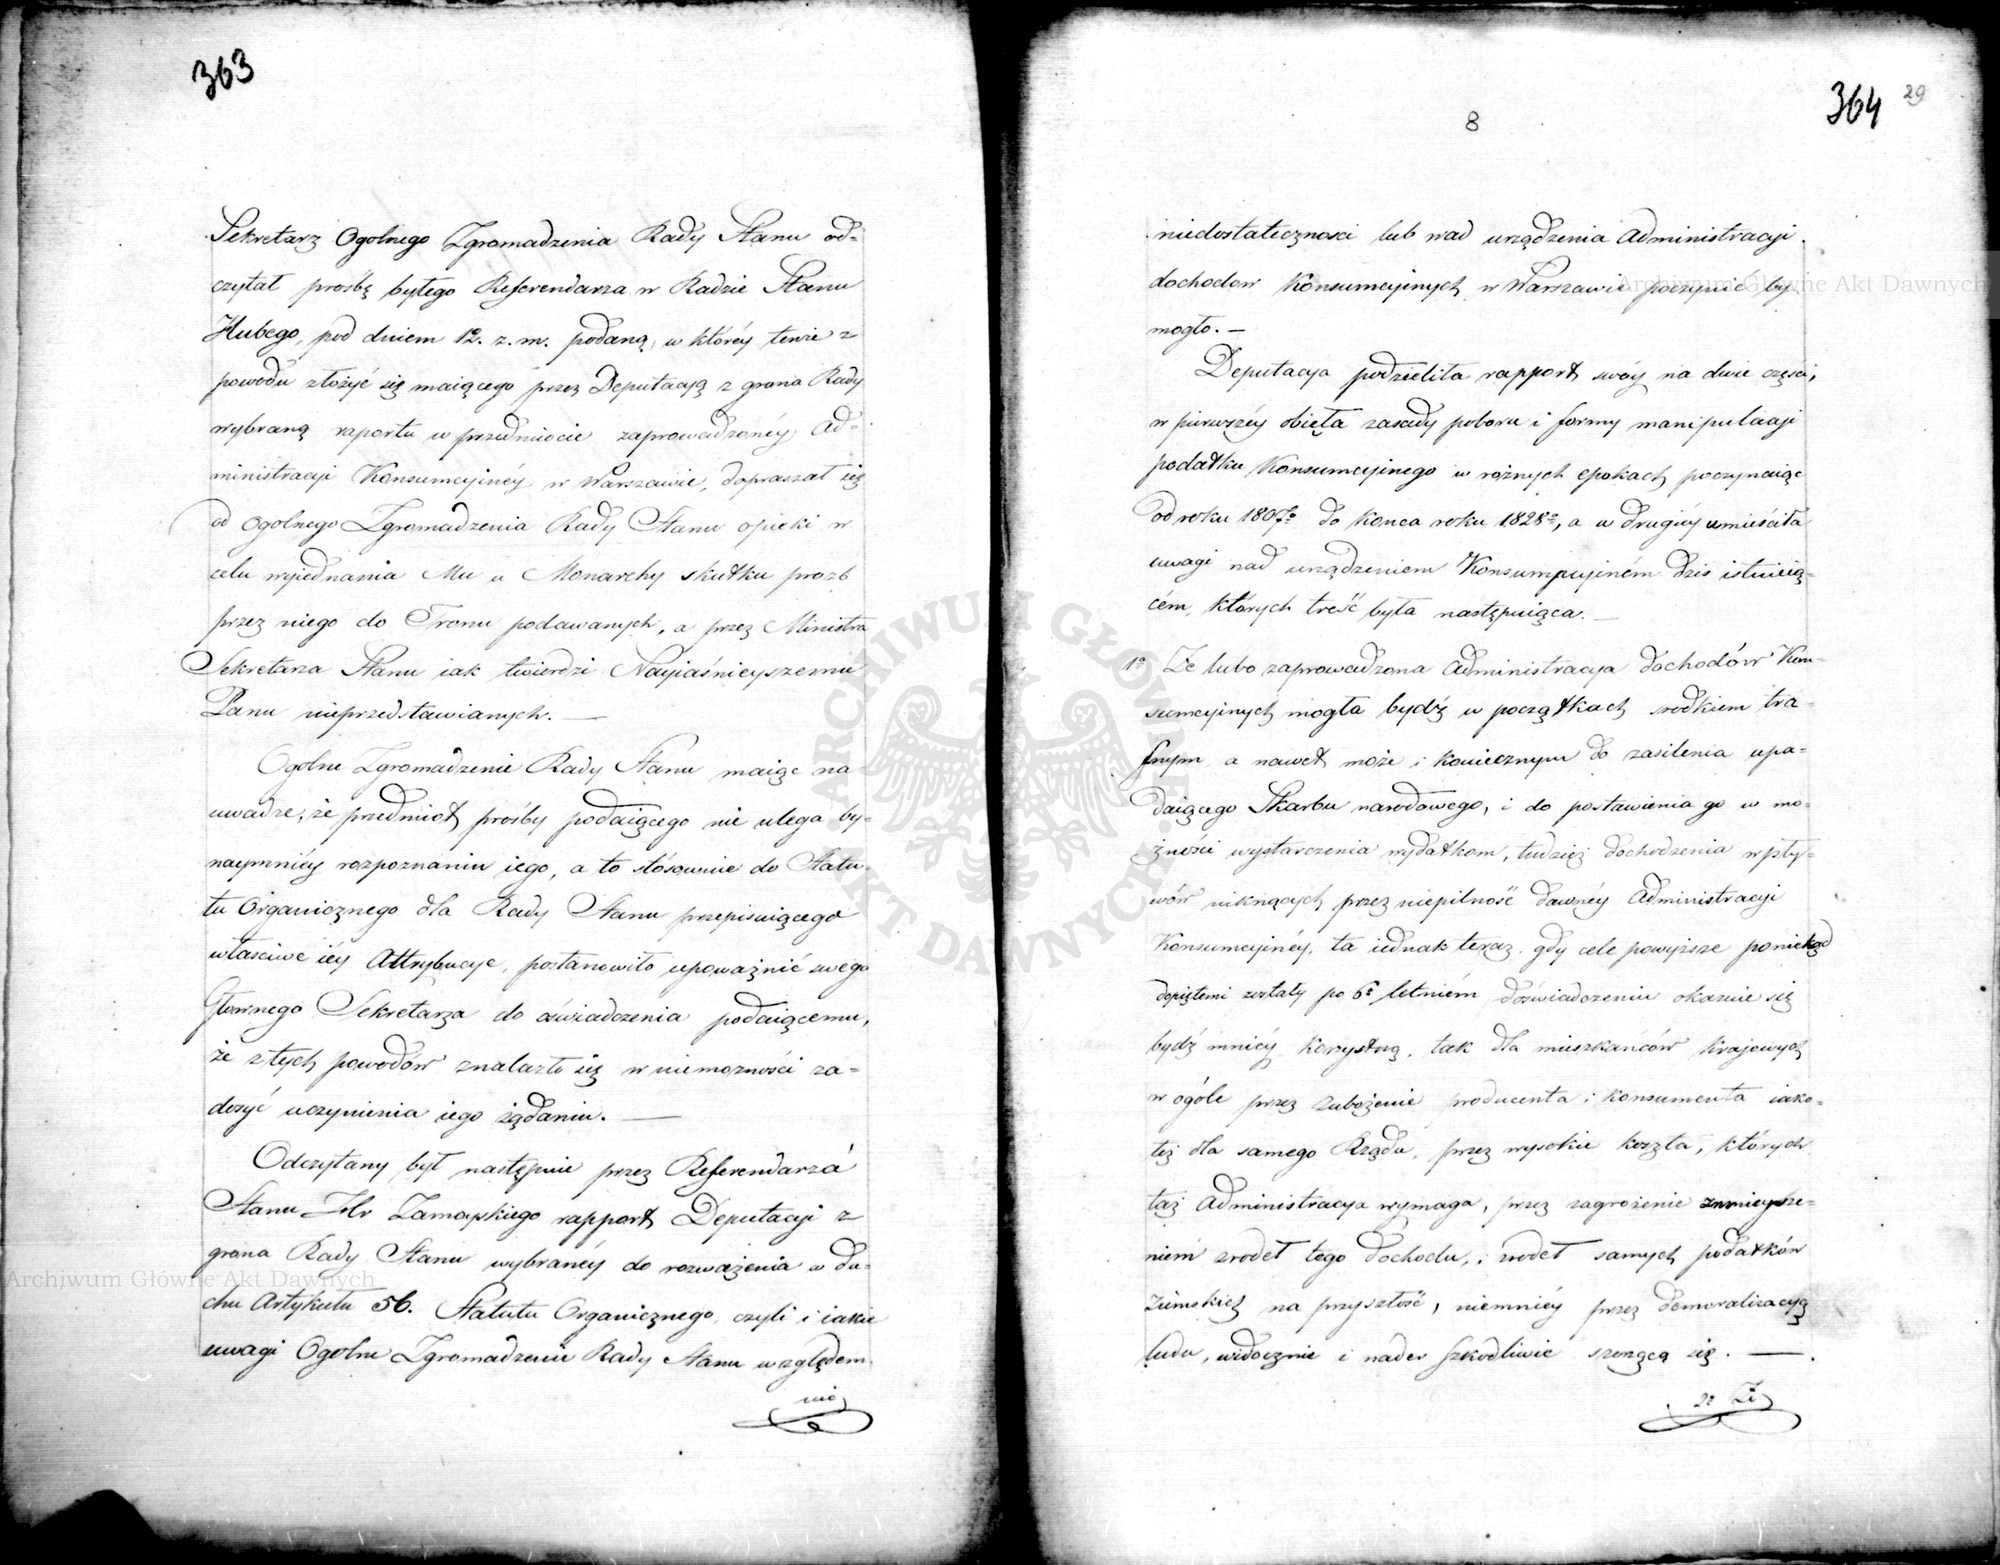 363
Sekretarz Ogolnego Zgromadzenia Rady Stanu od=
czytał prośbę byłego Referendarza w Radzie Stanu
Hubego, pod dniem 12. z. m. podaną, w któréy tenże z
powodu złożyć się maiącego przez Deputacyą z grona Rady
wybraną raportu w przedmiocie zaprowadzonéy Ad=
ministracyi Konsumcyinéy w Warszawie, dopraszał się
od Ogolnego Zgromadzenia Rady Stanu opieki w
celu wyiednania Mu u Monarchy skutku prozb
przez niego do Tronu podawanych, a przez Ministra
Sekretarza Stanu iak twierdzi Nayiaśnieyszemu
Panu nieprzedstawianych. —
Ogolne Zgromadzenie Rady Stanu maiąc na
uwadze, że przedmiot prośby podaiącego nie ulega by=
naymniéy rozpoznaniu iego, a to stósownie do Statu=
tu Organicznego dla Rady Stanu przepisuiącego
właściwe iéy Attrybucye, postanowiło upoważnić swego
Głownego Sekretarza do oświadczenia podaiącemu,
że z tych powodów znalazło się w niemożności za=
dosyć uczynienia iego żądaniu. —
Odczytany był następnie przez Referendarza
Stanu Hr Zamoyskiego rapport Deputacyi z
grona Rady Stanu wybranéy do rozważenia w du=
chu Artykułu 56. Statutu Organicznego, czyli i iakie
uwagi Ogolne Zgromadzenie Rady Stanu względem
nie
364 29
8
niedostateczności lub wad urządzenia Administracyi
dochodow Konsumcyinych w Warszawie poczynić by
mogło. —
Deputacya podzieliła rapport swóy na dwie części,
w pierwszéy obięła zasady poboru i formy manipulacyi
podatku Konsumcyinego w rożnych epokach poczynaiąc
od roku 1807º do konca roku 1828º, a w drugiéy umieściła
uwagi nad urządzeniem Konsumpcyiném dziś istnieią=
cém, których treść była następuiąca. —
1º Że lubo zaprowadzona Administracya dochodów Kon=
sumcyinych mogła bydź w początkach srodkiem tra=
fnym a nawet może i koniecznym do zasilenia upa=
daiącego Skarbu narodowego, i do postawienia go w mo=
żności wystarczenia wydatkom, tudzież dochodzenia wpły=
wów niknących przez niepilność dawnéy Administracyi
Konsumcyinéy, ta iednak teraz, gdy cele powyższe poniekąd
dopiętemi zostały po 6º letniém doświadczeniu okazuie się
bydź mniéy korzystną, tak dla mieszkańców krajowych
w ogóle przez zubożenie producenta i konsumenta iako=
też dla samego Rządu, przez wysokie koszta, których
taż Administracya wymaga, przez zagrożenie zmnieysze=
niem zrodeł tego dochodu, i zrodeł samych podatków
Ziemskich na przyszłość, niemniéy przez demoralizacyą
ludu, widocznie i nader szkodliwie szerzącą się. —
2º Że
Archiwum Główne Akt Dawnych
Archiwum Główne Akt Dawnych
ARCHIWUM GŁÓWNE AKT DAWNYCH